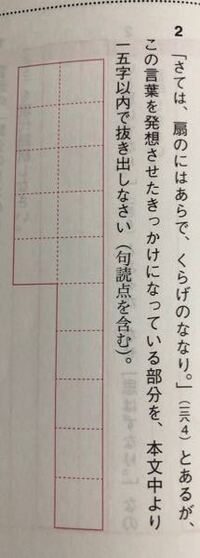 2
「さては、扇のにはあらで、くらげのななり。」（一六4）とあるが、
この言葉を発想させたきっかけになっている部分を、本文中より
一五字以内で抜き出しなさい（句読点を含む）。